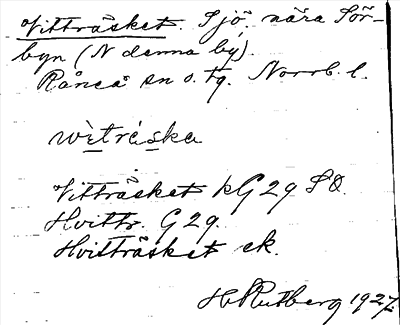 Vitträsket. Sjö nära Sör-
byn (N denna by).
Råneå sn o. tg. Norrb. l.
wìtrǻska
Vitträsket kG 29 SO.
Hvittr. G 29.
Hvitträsket ek.
H. Rutberg 1927